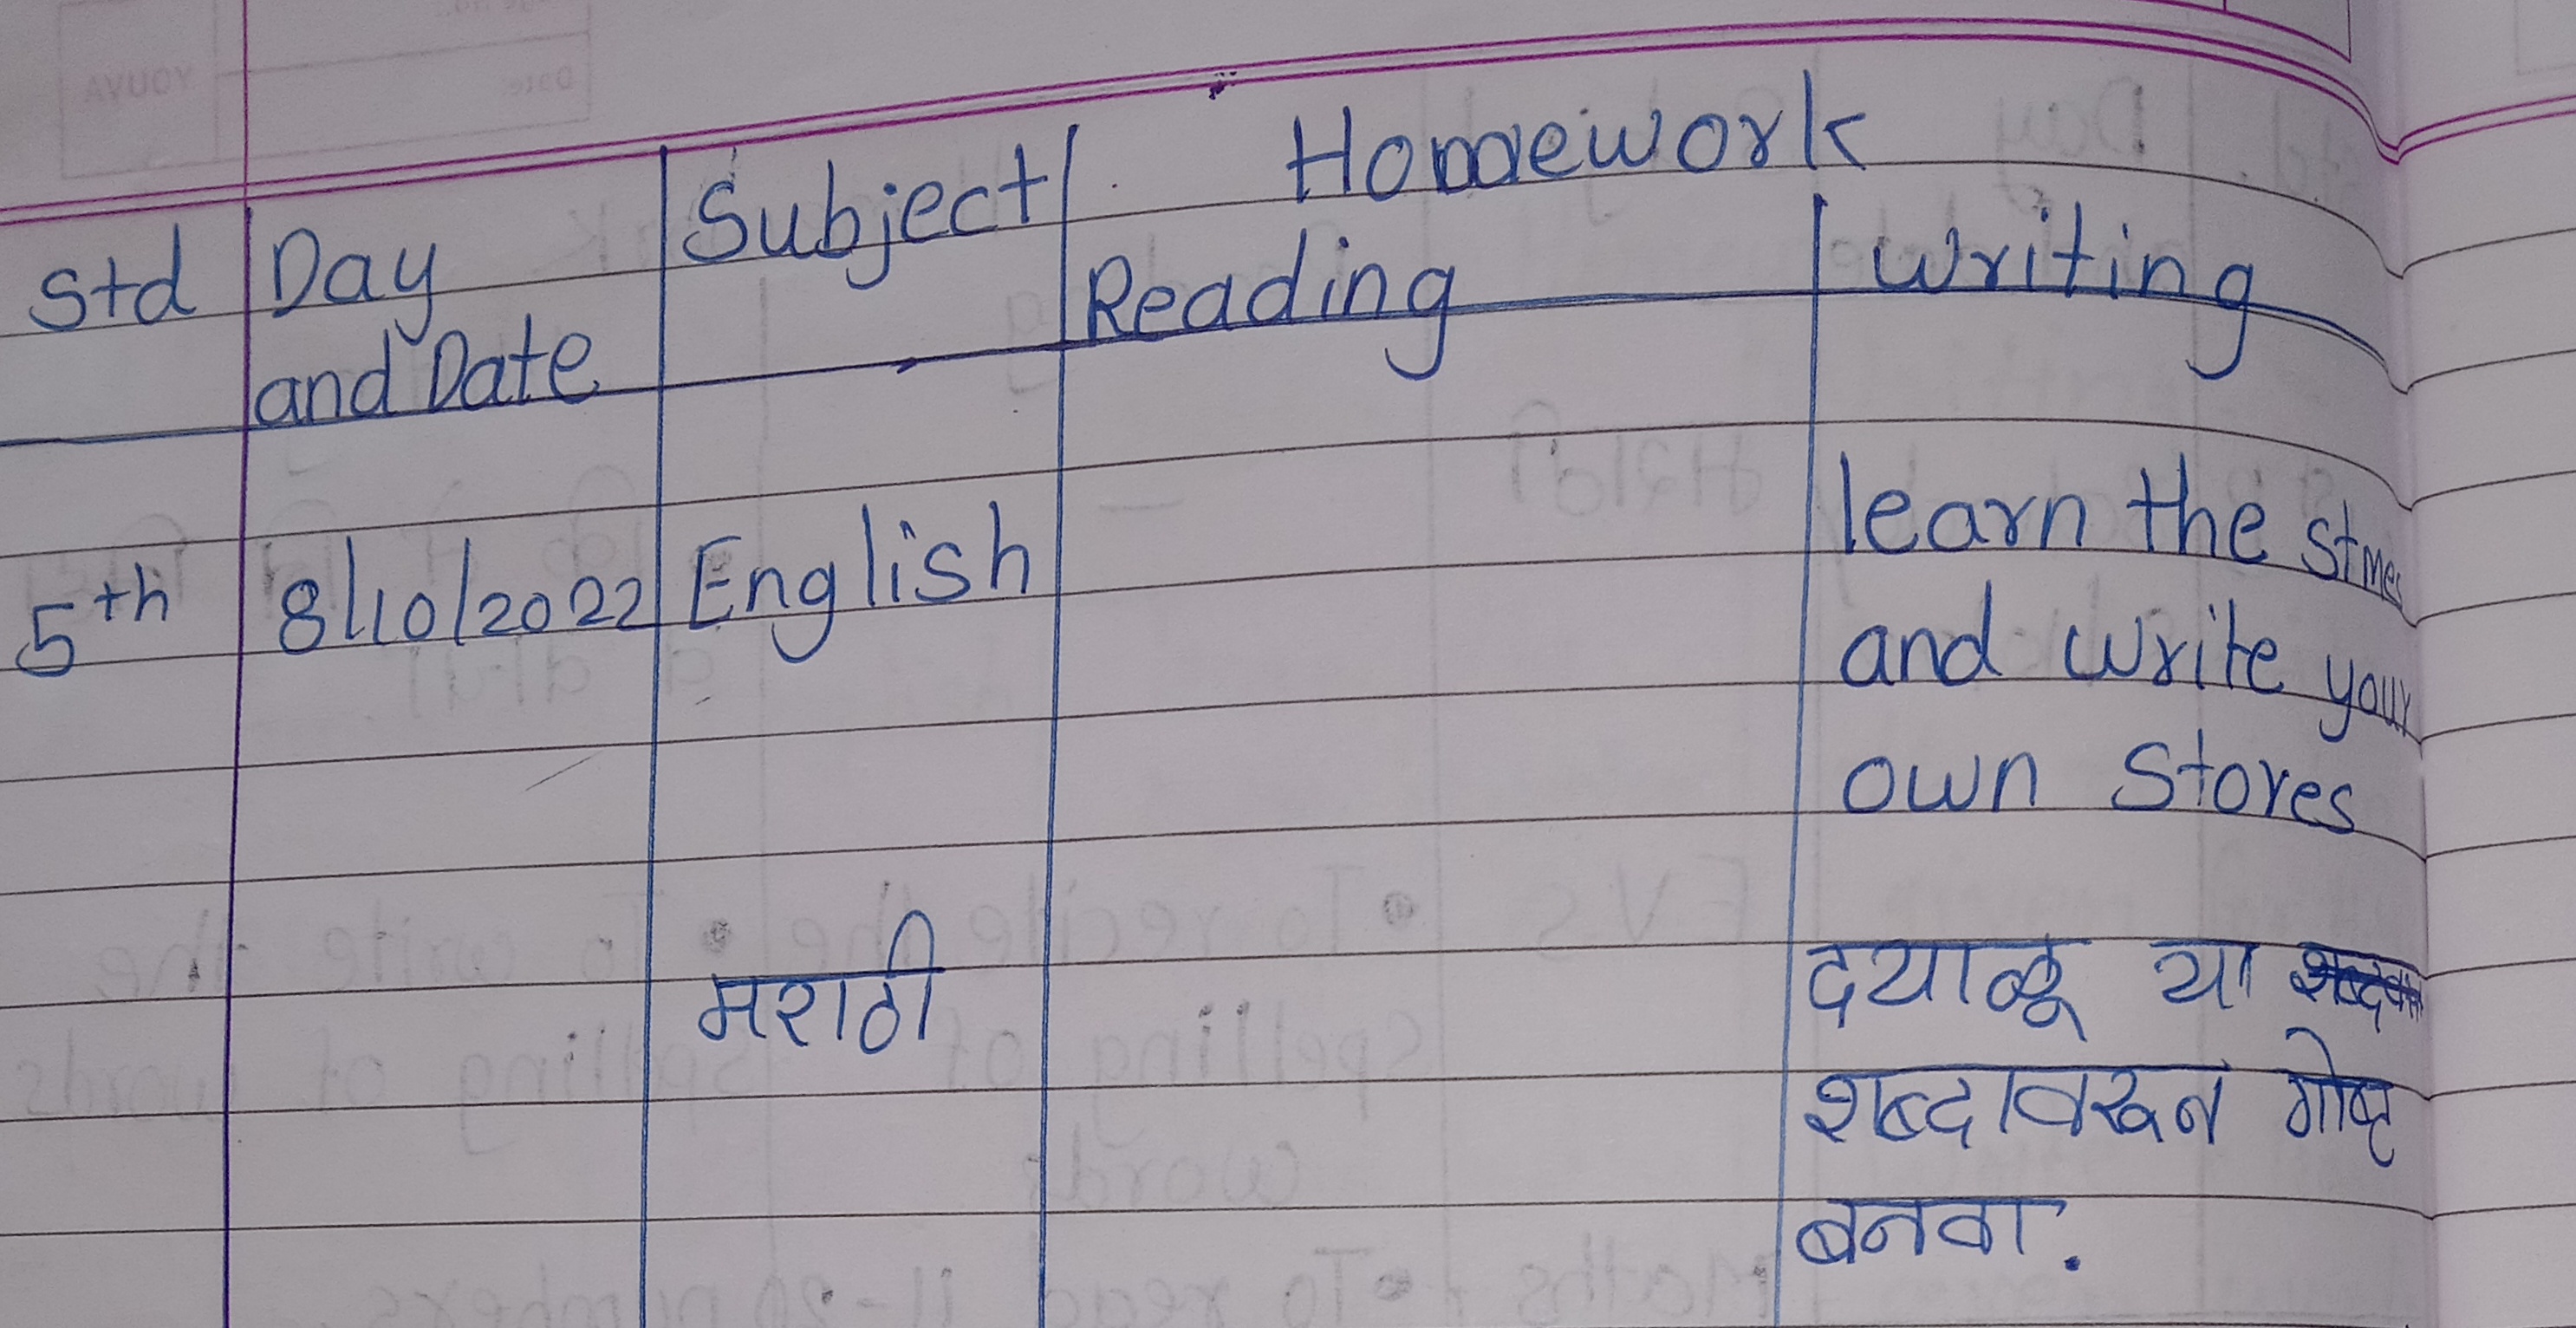 Homework
Std Day Subject Reading writing
and Date
5th 8/10/2022 English learn the
and write your
own Stores
मराठी दयाळू या
शब्दावरून गोष्ट
बनवा.